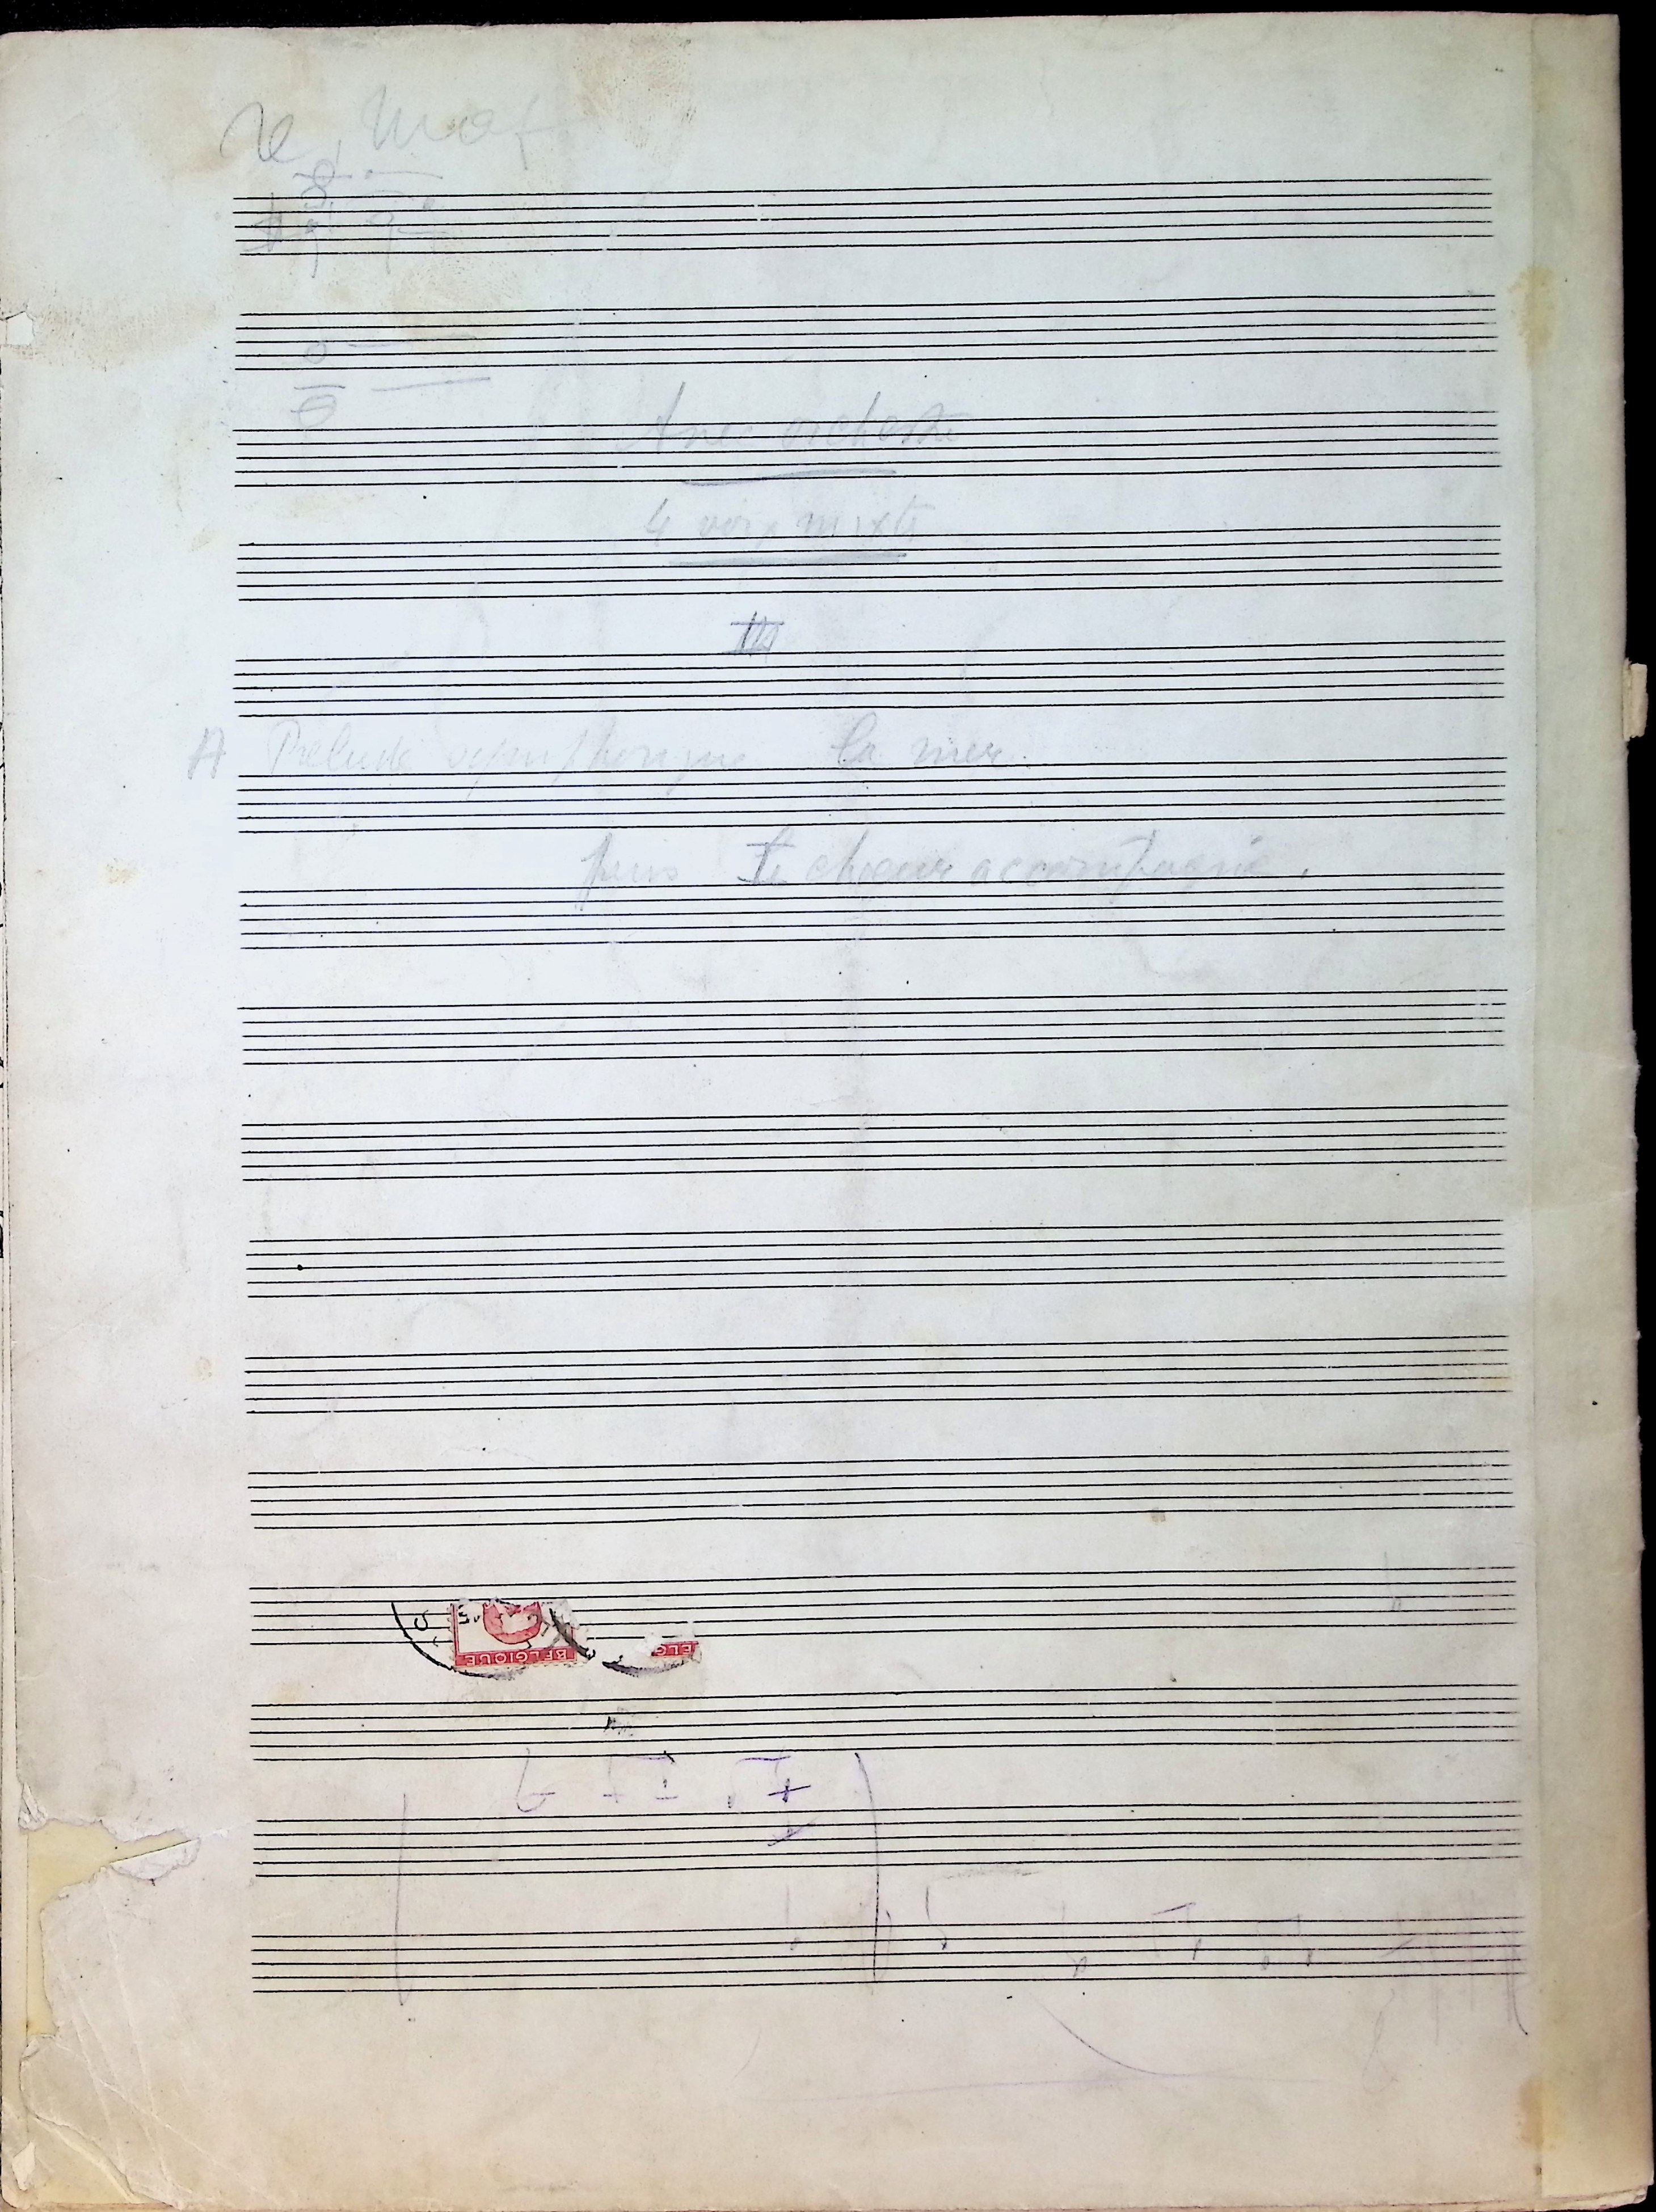 Avec orchestre
4 voix mixtes
III
A Prélude symphonique La mer.
puis choeur accompagné.
BELGIQUE
ELG